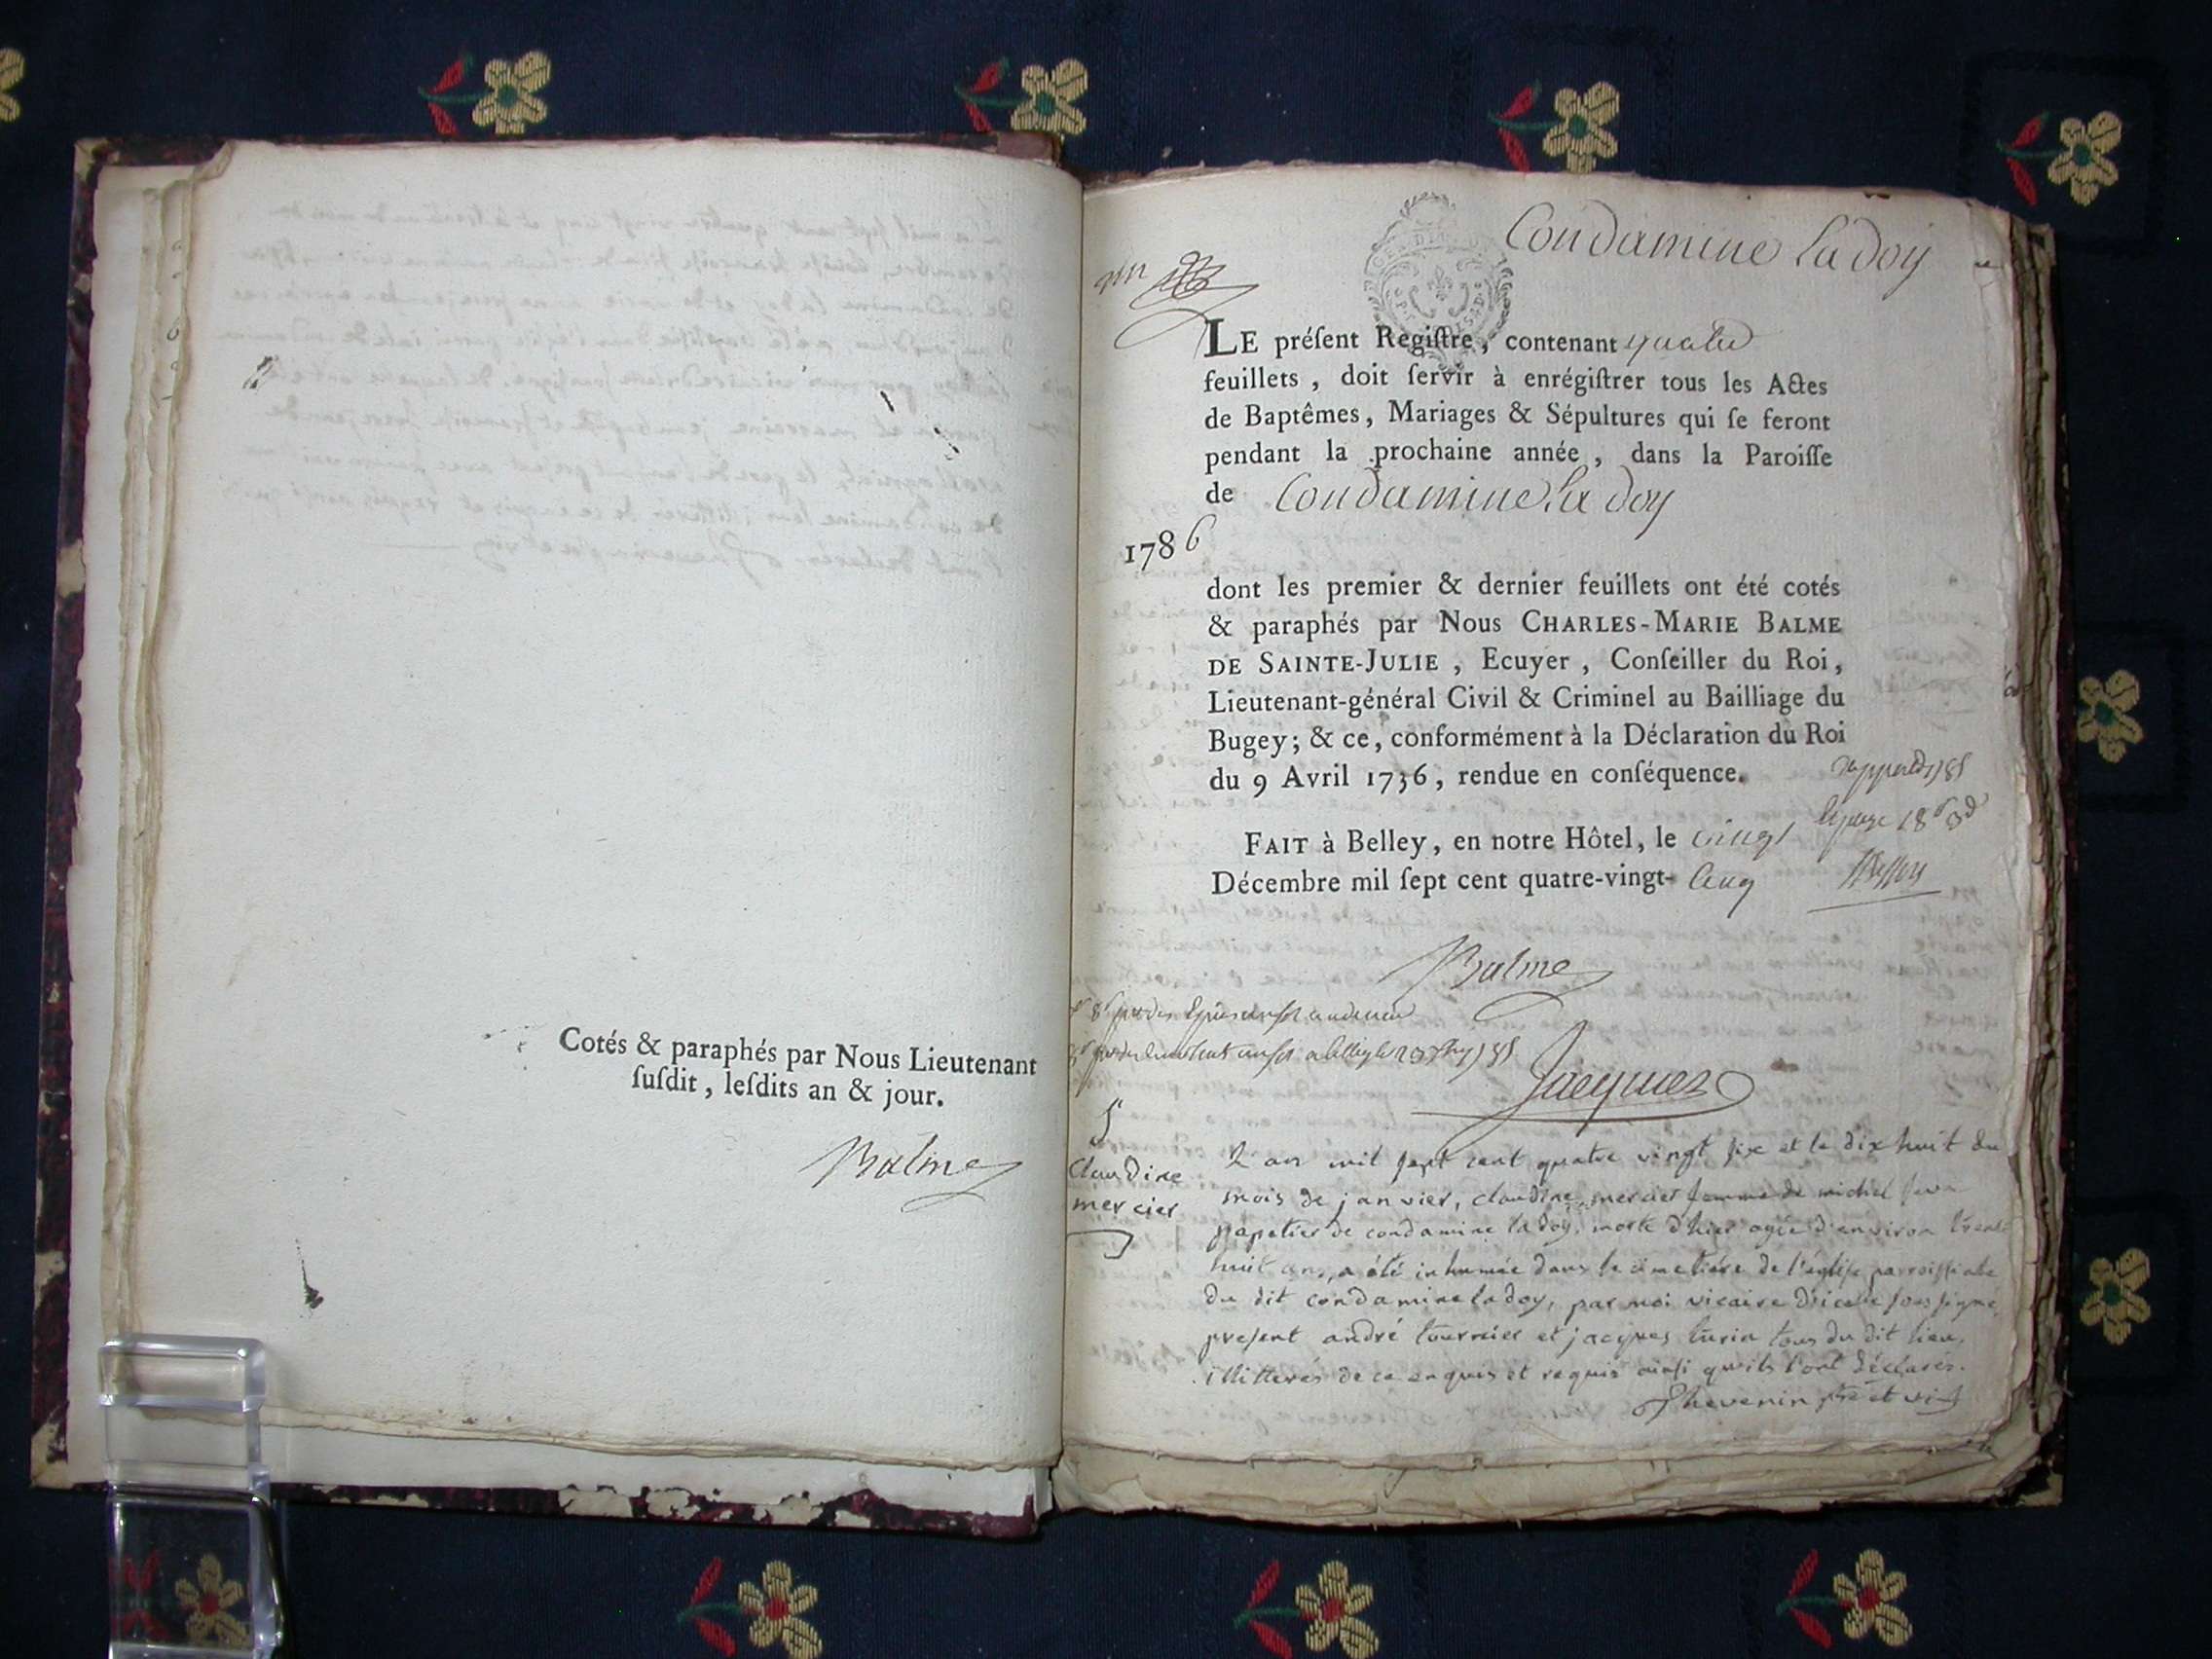 Cotés & paraphés par Nous Lieutenant
ſuſdit, leſdits an & jour.
Balme
Condamine la doy
LE préſent Regiſtre, contenant quatre
feuillets, doit ſervir à enrégiſtrer tous les Actes
de Baptêmes, Mariages & Sépultures qui ſe feront
pendant la prochaine année, dans la Paroiſſe
de Condamine la doy
1786
dont les premier & dernier feuillets ont été cotés
& paraphés par Nous CHARLES-MARIE BALME
DE SAINTE-JULIE, Ecuyer, Conſeiller du Roi,
Lieutenant-général Civil & Criminel au Bailliage du
Bugey; & ce, conformément à la Déclaration du Roi
du 9 Avril 1736, rendue en conſéquence.
FAIT à Belley, en notre Hôtel, le vingt
Décembre mil ſept cent quatre-vingt-cinq
Balme
Jacquez
Claudine
mercier
L'an mil sept cent quatre vingt six et le dix huit du
mois de janvier, claudine mercier femme de michel
papetier de condamine la doy, morte d'hier agée d'environ trente
huit ans, a été inhumée dans le cimetière de l'église parroissiale
du dit condamine la doy, par moi vicaire d'icelle soussigné,
present andré tournier et jacques turin tous du dit lieu,
illitterés de ce enquis et requis ainsi qu'ils l'ont déclarés.
Thevenin ptre et vic